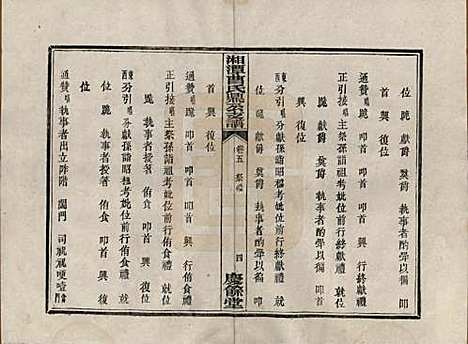 位　跪　獻爵　奠爵　執事者酌斝以徧　叩
首　興　復位
正引接唱主祭孫詣祖考妣位前行終獻禮
東西分引唱分獻孫詣昭穆考妣位前行終獻禮
位　跪　獻爵　奠爵　執事者酌斝以徧　叩首
興　復位
湘潭曹氏
卷五　祭禮
四
慶餘堂
首　興　復位
通贊唱執事者授箸　侑食　叩首　興　復位
正引接唱主祭孫詣祖考妣位前行侑食禮
跪　叩首　興　復位
東西分引唱分獻孫詣昭穆考妣位前行侑食禮
跪　執事者授箸　侑食　叩首　興　復
位
通贊唱執事者出立阼階　闔門　司祝祝